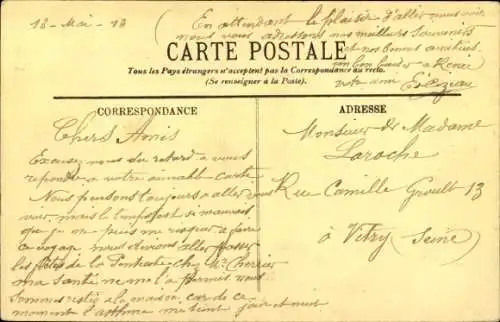 18 - Mai - 13
En attendant le plaisir d'aller vous voir
nous vous adressons nos meilleurs souvenirs
et nos bonnes amitiés
un bon baiser à Renée
votre amie
CARTE POSTALE
Tous les Pays étrangers n'acceptent pas la Correspondance au recto.
(Se renseigner à la Poste).
CORRESPONDANCE
Chers Amis
Excusez nous du retard a vous
repondre a votre aimable carte
Nous pensons toujours a aller vous
voir, mais le temps est si mauvais
que je ne puis me risquer a faire
ce voyage nous devions aller passer
les fêtes de la Pentecôte chez Mr Cherrier
ma santé ne me l'a permis nous
sommes resté a la maison, car de ce
moment l'asthme me tient jour et nuit
ADRESSE
Monsieur & Madame
Laroche
Rue Camille Groult 13
à Vitry (Seine)